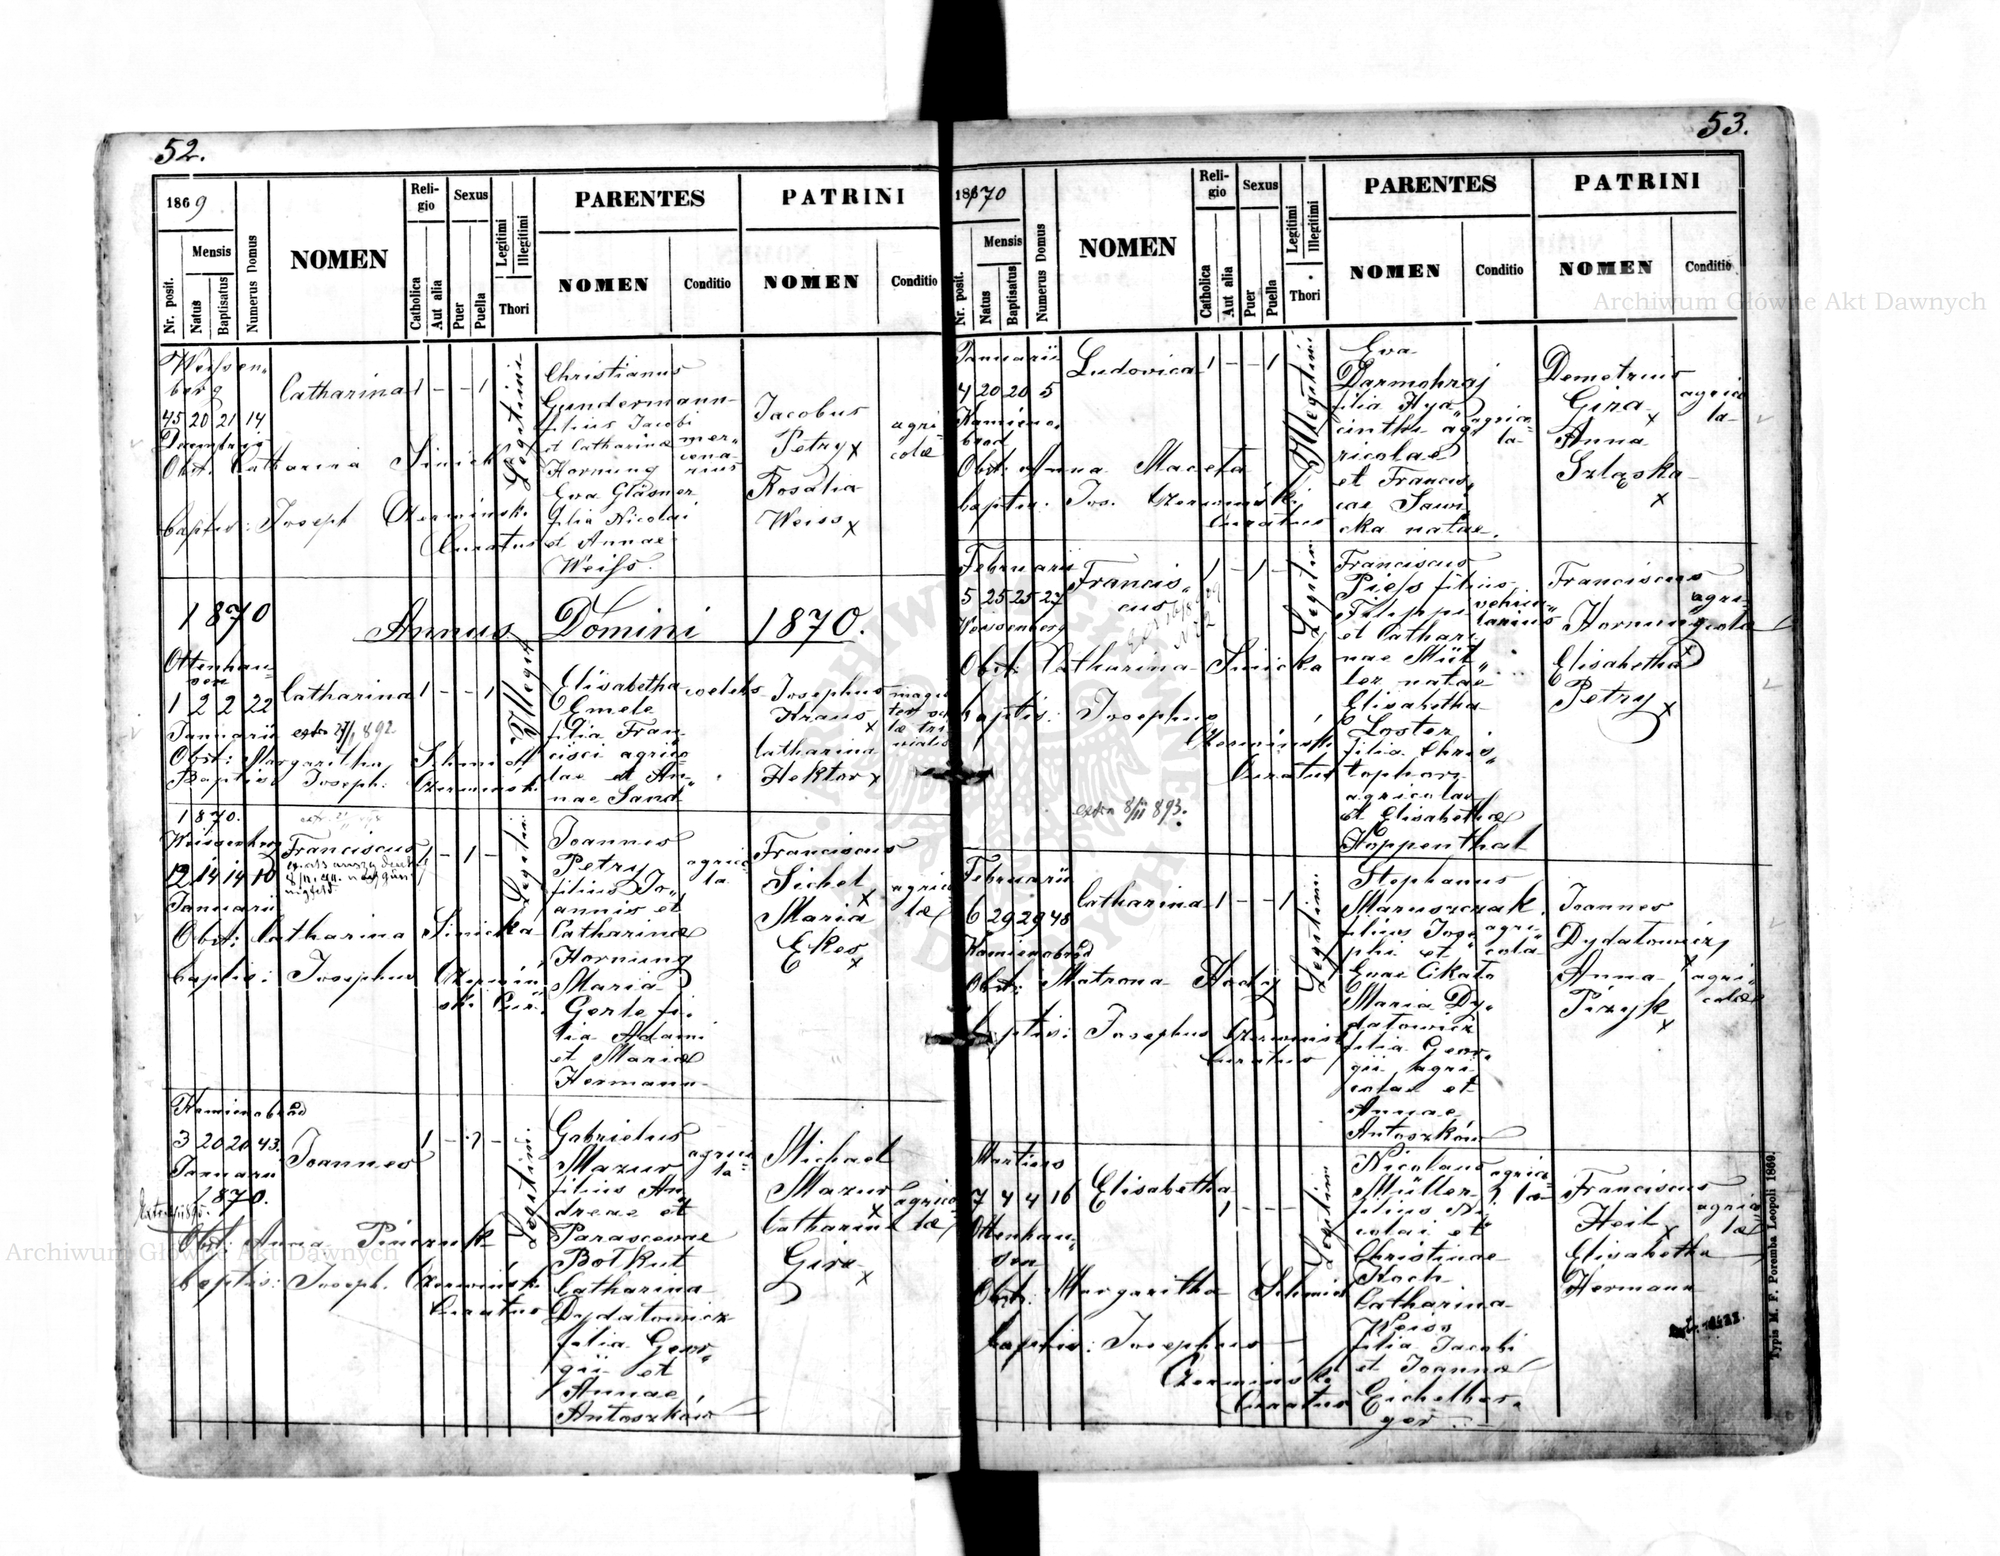 52.
1869
Nr. posit.
Mensis
Natus
Baptisatus
Numerus Domus
NOMEN
Reli-
gio
Catholica
Aut alia
Sexus
Puer
Puella
Legitimi
Illegitimi
Thori
PARENTES
NOMEN
Conditio
PATRINI
NOMEN
Conditio
Weissen-
berg
45 20 21 14
Catharina 1 - - 1
Legitimi
Christianus
Gundermann
filius Jacobi
et Catharinae
Hornung
Eva Gläsner
filia Nicolai
et Annae
Weiss.
Jacobus
Petry x
Rosalia
Weiss x
agri-
colae
Obst: Catharina Sinicka
baptis: Joseph Czermiński
Curatus
1870
Annus Domini 1870.
Ottenhau-
sen
1 2 2 22
Januarii
Catharina 1 - - 1
Illegit.
Elisabetha
Emele
filia Fran-
cisci agrico-
lae et An-
nae Sand
Josephus
Kraus x
Catharina
Hektor x
Obst: Margaritha Schmidt
Baptis: Joseph. Czermiński
1870.
Weissenberg
2 14 14 10
Januarii
Franciscus 1 - 1 -
Legitim.
Joannes
Petry
filius Jo-
annis et
Catharinae
Hornung
Maria
Gerle fi-
lia Adami
et Mariae
Hermann
agrico-
la
Franciscus
Sichel x
Maria
Ekes x
agrico-
lae
Obst: Catharina Sinicka
baptis: Josephus Czermiń-
ski Cur.
Kamienobrod
3 20 20 43.
Januarii
1870.
Joannes
Legitim.
Gabrielus
Mazur
filius An-
dreae et
Parascevae
Botkut
Catharina
Dydatowicz
filia Geor-
gii et
Annae
Antoszków
agrico-
la
Michael
Mazur x
Catharina
Gira x
agrico-
lae
Obst: Anna Pinczuk
baptis: Joseph. Czermiński
Curatus
53.
1870
Nr. posit.
Mensis
Natus
Baptisatus
Numerus Domus
NOMEN
Reli-
gio
Catholica
Aut alia
Sexus
Puer
Puella
Legitimi
Illegitimi
Thori
PARENTES
NOMEN
Conditio
PATRINI
NOMEN
Conditio
Januarii
4 20 20 5
Kamieno-
brod
Ludovica 1 - - 1
Illegitimi
Eva
Darmohraj
filia Hya-
cinthi ag-
ricolae
et Francis-
cae Sawi-
cka natae.
agrico-
la
Demetrius
Gira x
Anna
Szląska
x
agrico-
la
Obst: Anna Maceta
baptis. Jos. Czermiński
Curatus
Februarii
5 25 25 27
Weissenberg
Francis-
cus
1 - 1 -
Legitim.
Franciscus
Piess filius
Filippi
et Cathari-
nae Mül-
ler natae
Elisabetha
Loster
filia Chris-
tophori
agricolae
et Elisabethae
Hoppenthal
Franciscus
Hornung
Elisabetha
Petry x
agri-
colae
Obst: Catharina Sinicka
baptis: Josephus
Czermiński
Curatus
extra 8/II 893.
Februarii
6 29 29 48
Kamienobrod
Catharina 1 - - 1
Legitim.
Stephanus
Maruszczak
filius Jose-
phi et
Evae Cikało
Maria Dy-
datowicz
filia Geor-
gii agri-
colae et
Annae
Antoszków
agri-
cola
Joannes
Dydatowicz x
Anna
Pizyk
x
agri-
colae
Obst: Matrona Hody
baptis: Josephus Czermiński
Curatus
Martius
7 4 4 16
Ottenhau-
sen
Elisabetha
Legitim.
Nicolaus
Müller
filius Ni-
colai et
Christinae
Koch
Catharina
Weiss
filia Jacobi
et Joannae
Eichelber-
ger
Franciscus
Heil x
Elisabetha
Hermann
agrico-
lae
Obst. Margaritha Schmidt
baptis: Josephus
Czermiński
Curatus
Typis M. F. Poremba Leopoli 1869.
Archiwum Główne Akt Dawnych
Archiwum Główne Akt Dawnych
ARCHIWUM GŁÓWNE AKT DAWNYCH